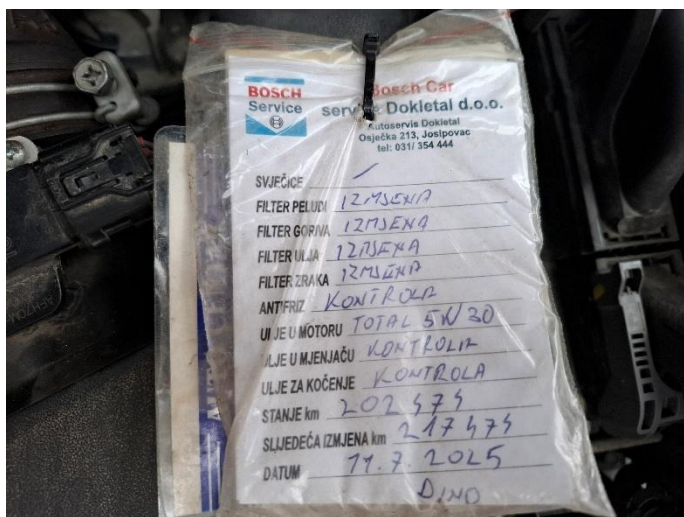 BOSCH
Service
Bosch Car
service Dokletal d.o.o.
Autoservis Dokletal
Osječka 213, Josipovac
tel: 031/ 354 444
SVJEČICE /
FILTER PELUDI IZMJENA
FILTER GORIVA IZMJENA
FILTER ULJA IZMJENA
FILTER ZRAKA IZMJENA
ANTIFRIZ KONTROLA
ULJE U MOTORU TOTAL 5W30
ULJE U MJENJAČU KONTROLA
ULJE ZA KOČENJE KONTROLA
STANJE km 202474
SLIJEDEĆA IZMJENA km 217474
DATUM 11.7.2025
DINO